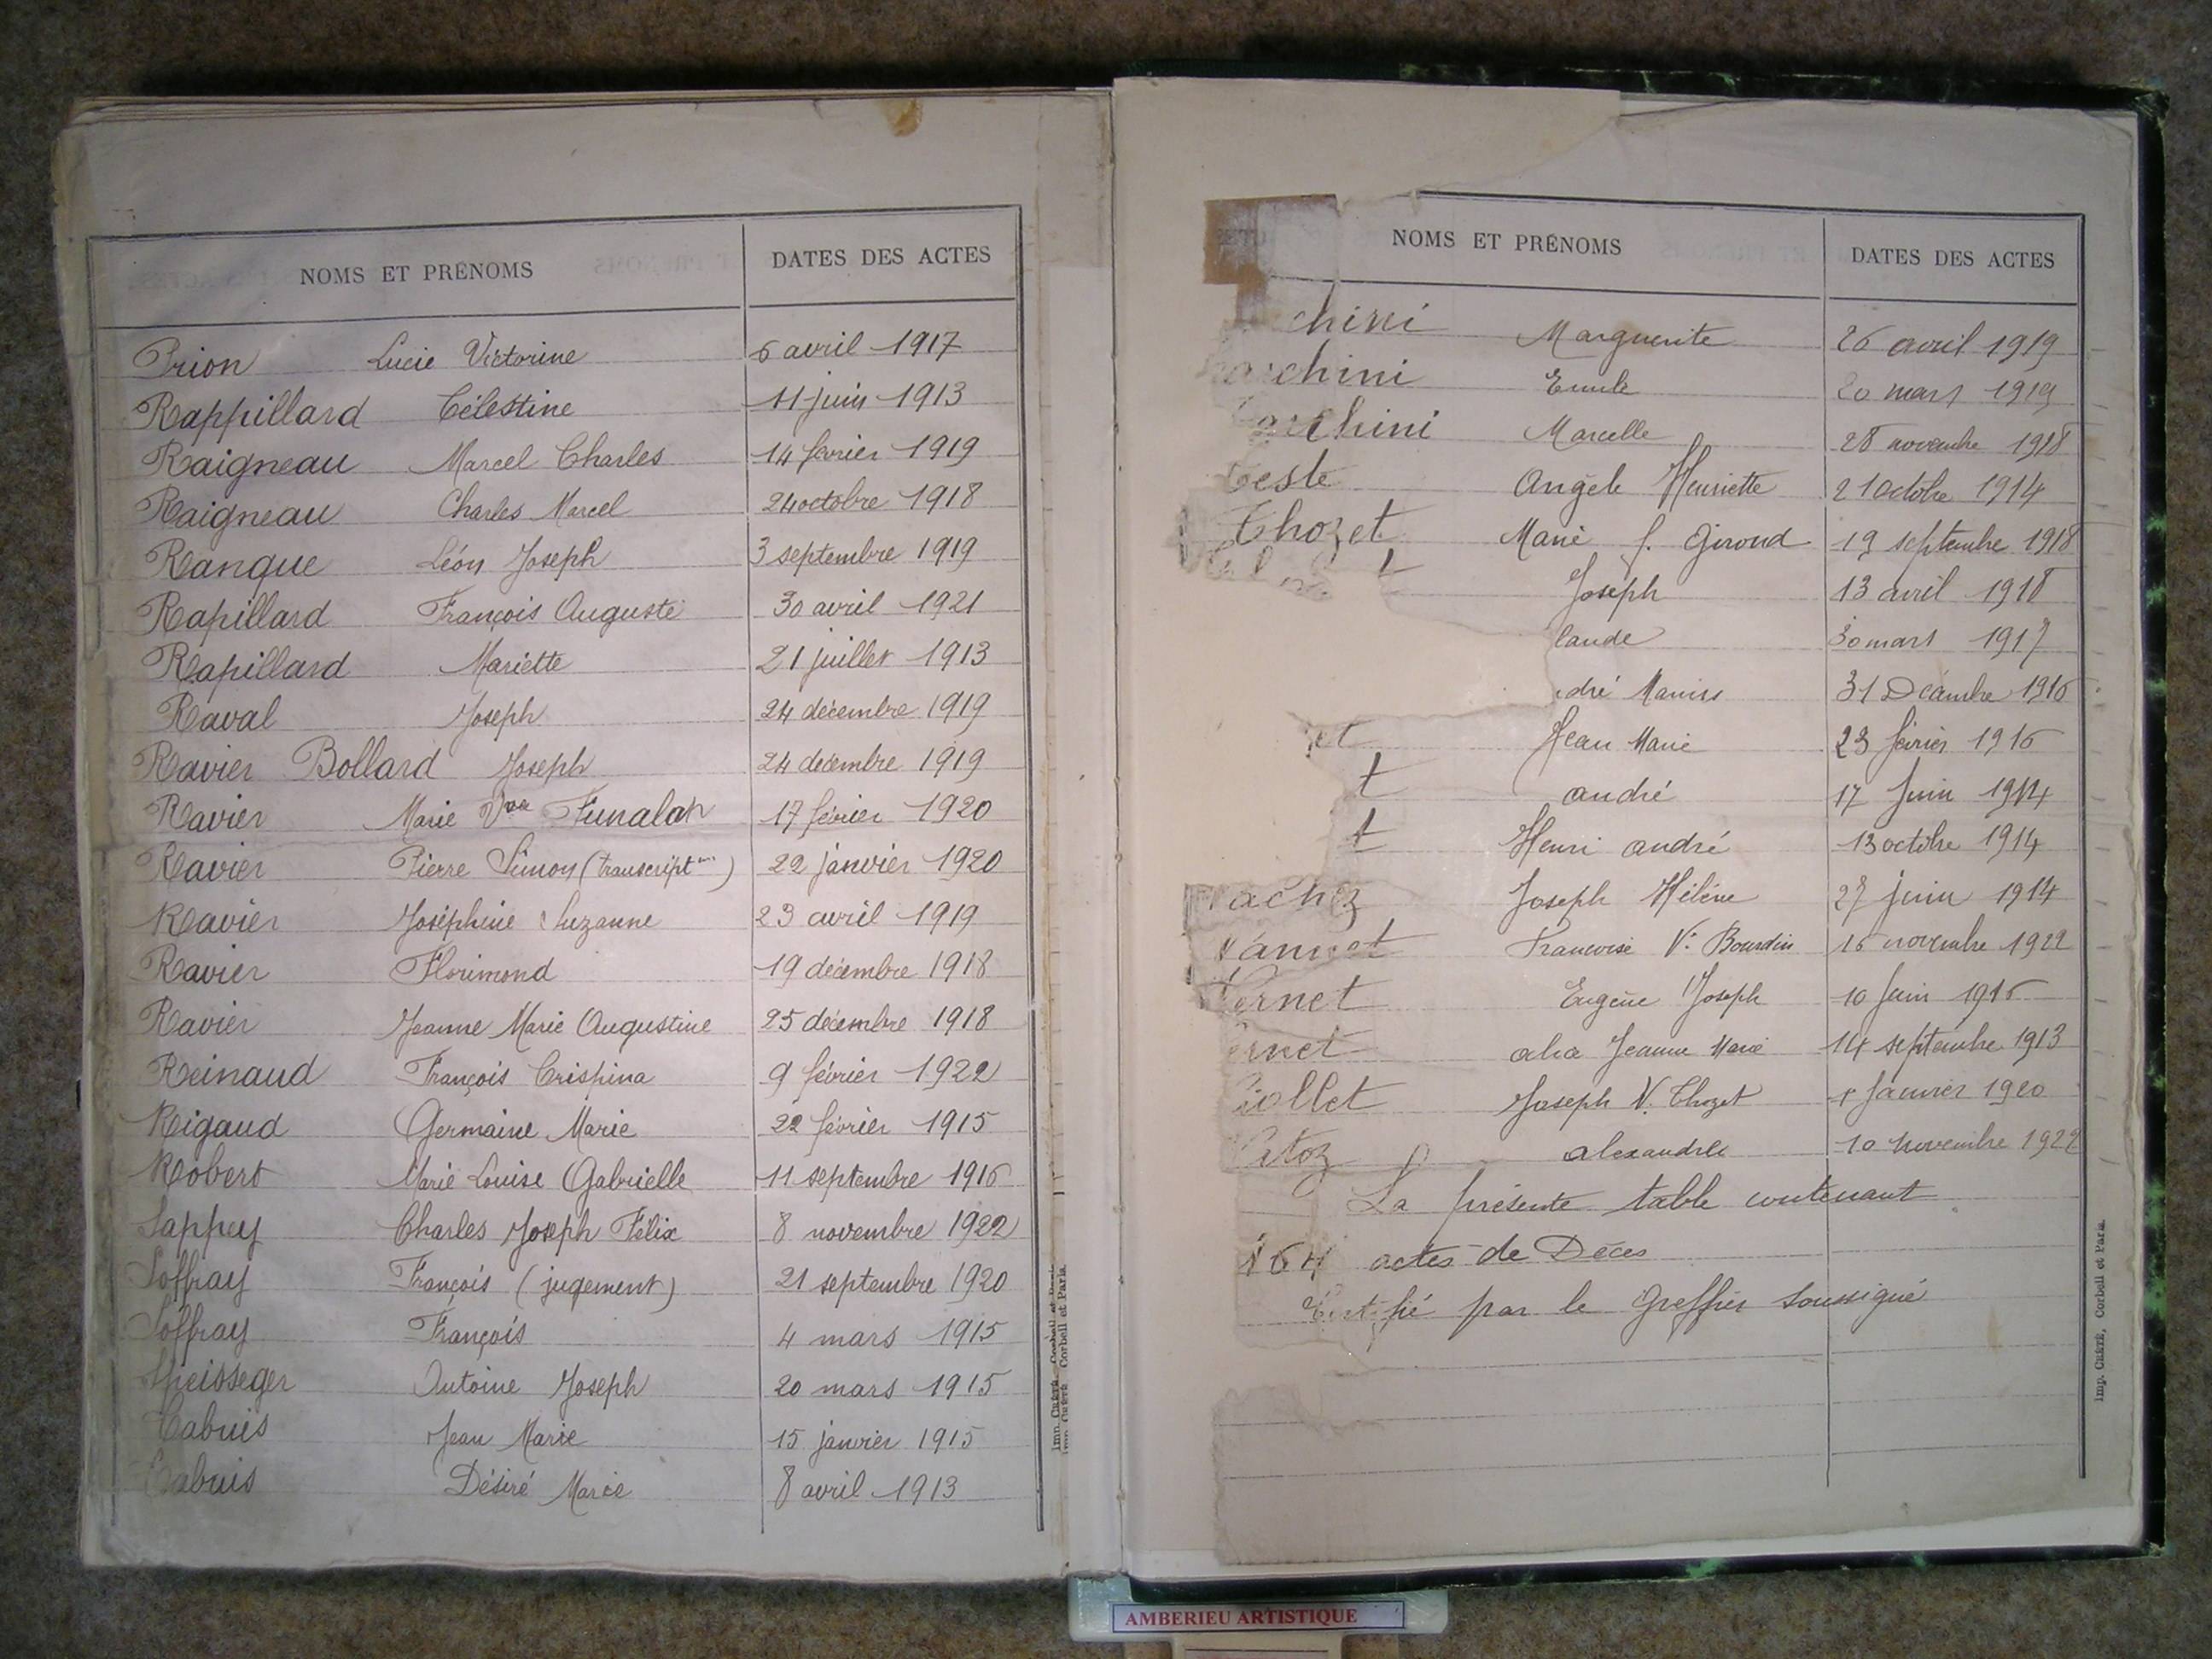 NOMS ET PRÉNOMS DATES DES ACTES
Prion Lucie Victorine 6 avril 1917
Rappillard Célestine 11 juin 1913
Raigneau Marcel Charles 14 février 1919
Raigneau Charles Marcel 24 octobre 1918
Rangue Léon Joseph 3 septembre 1919
Rapillard François Auguste 30 avril 1921
Rapillard Mariette 21 juillet 1913
Raval Joseph 24 décembre 1919
Ravier Bollard Joseph 24 décembre 1919
Ravier Marie Vve 17 février 1920
Ravier Pierre Simon (transcript) 22 janvier 1920
Ravier Joséphine Suzanne 23 avril 1919
Ravier Florimond 19 décembre 1918
Ravier Jeanne Marie Augustine 25 décembre 1918
Reinaud François Crispina 9 février 1922
Rigaud Germaine Marie 22 février 1915
Robert Marie Louise Gabrielle 11 septembre 1916
Sappey Charles Joseph Félix 8 novembre 1922
Soffray François (jugement) 21 septembre 1920
Soffray François 4 mars 1915
Speisseger Antoine Joseph 20 mars 1915
Cabuis Jean Marie 15 janvier 1915
Cabuis Désiré Marie 8 avril 1913
Imp. CRÉTÉ, Corbeil et Paris.
NOMS ET PRÉNOMS DATES DES ACTES
chini Marguerite 26 avril 1919
chini Emile 20 mars 1919
chini Marcelle 28 novembre 1918
Teste Angèle Henriette 21 Octobre 1914
Thozet Marie f. Giroud 19 septembre 1918
t Joseph 13 avril 1918
laude 30 mars 1917
dré 31 Décembre 1916
et Jean Marie 23 février 1916
t andré 17 Juin 1914
t Henri andré 13 octobre 1914
achez Joseph Hélène 27 juin 1914
Vannet Françoise V. Bourdin 16 novembre 1922
Vernet Eugène Joseph 10 Juin 1916
ernet Jeanne Marie 14 septembre 1913
iollet Joseph V. Thozet Janvier 1920
alexandre 10 novembre 1922
La présente table contenant
164 actes de Décès
Certifié par le Greffier soussigné
Imp. CRÉTÉ, Corbeil et Paris.
AMBERIEU ARTISTIQUE